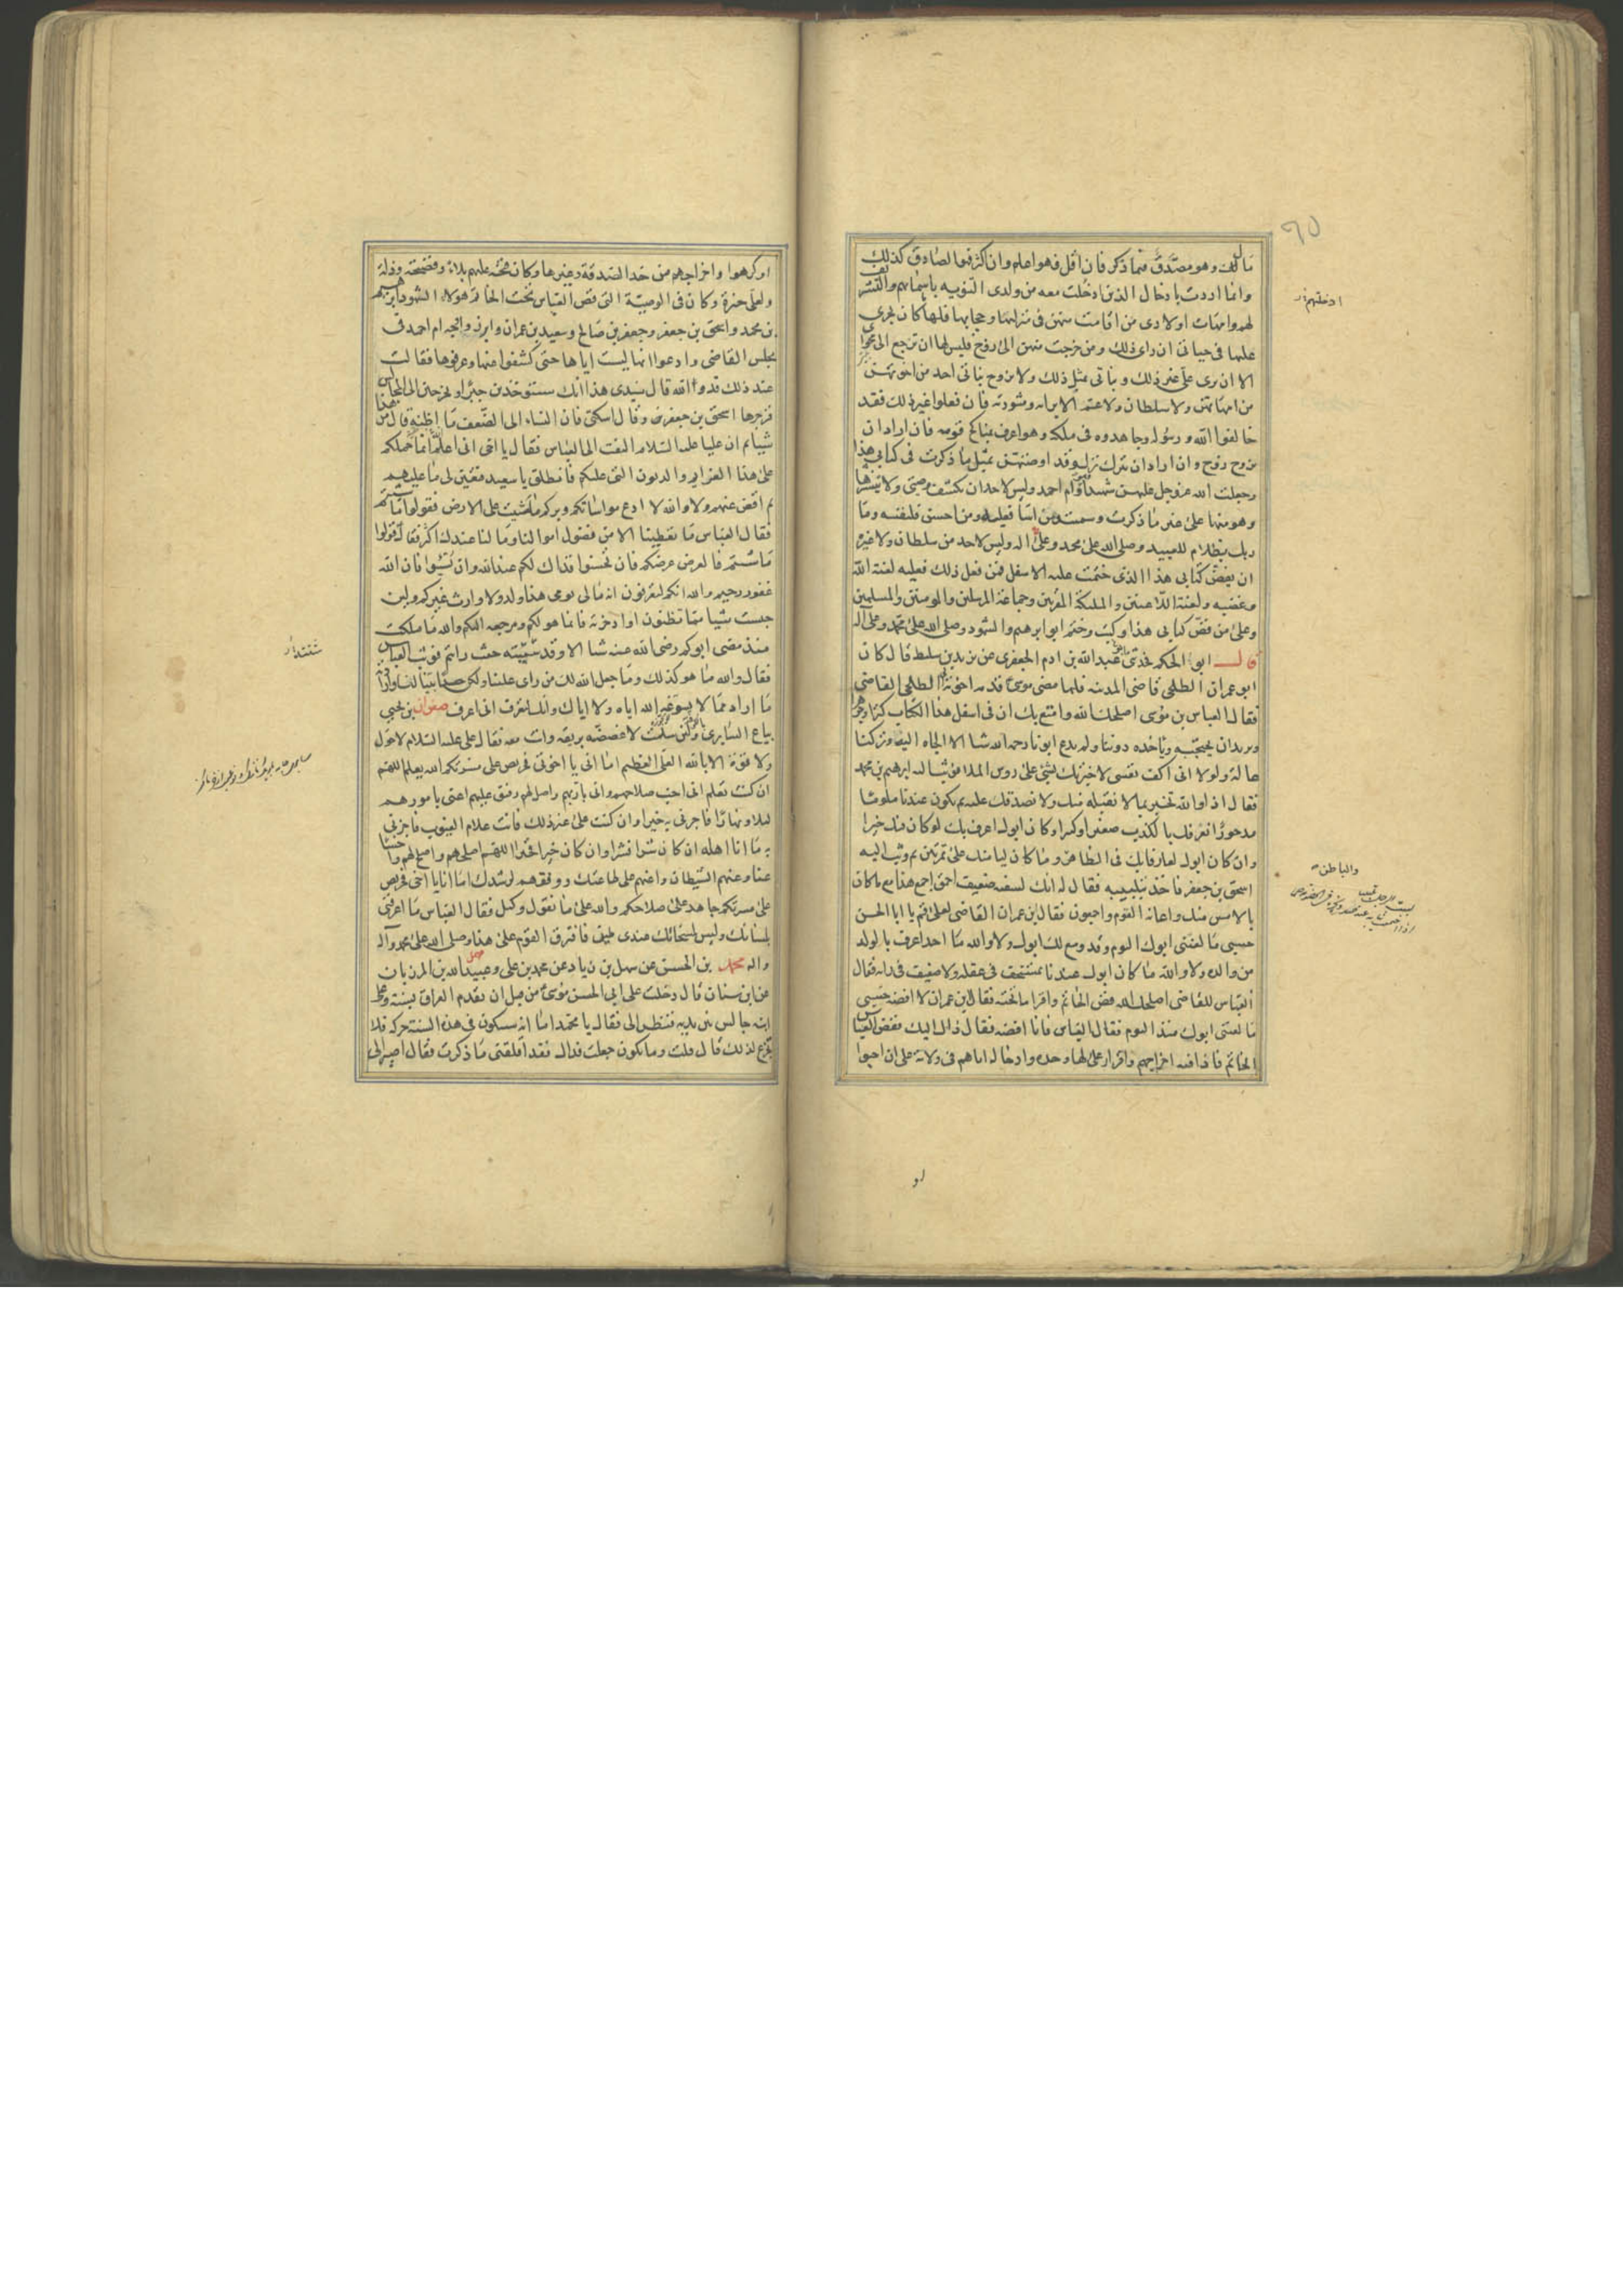 مالى كيف وهو مصدق فيما ذكر فان اقل فهو اعلم وان اكثر فهو الصادق كذلك
وانما اردت بادخال الذين ادخلت معه من ولدى التنويه باسمائهم والتشريف
لهم وامهات اولادى من اقامت منهن فى منزلها وحجابها فلها ما كان يجرى
عليها فى حياتى ان راى ذلك ومن خرجت منهن الى زوج فليس لها ان ترجع الى محواى
الا ان يرى على غير ذلك وبناتى بمثل ذلك ولا يزوج بناتى احد من اخوتهن
من امهاتهن ولا سلطان ولا عم الا برايه ومشورته فان فعلوا غير ذلك فقد
خالفوا الله ورسوله وجاهدوه فى ملكه وهو اعرف بمناكح قومه فان اراد ان
يزوج زوج وان اراد ان يترك ترك وقد اوصيتهن بمثل ما ذكرت فى كتابى هذا
وجعلت الله عز وجل عليهن شهيدا وهو وام احمد وليس لاحد ان يكشف وصيتى ولا ينشرها
وهو منها على غير ما ذكرت وسميت فمن اساء فعليه ومن احسن فلنفسه وما
ربك بظلام للعبيد وصلى الله على محمد وعلى اله وليس لاحد من سلطان ولا غيره
ان يفض كتابى هذا الذى ختمت عليه الاسفل فمن فعل ذلك فعليه لعنة الله
وغضبه ولعنة اللاعنين والملئكة المقربين وجماعة المرسلين والمومنين والمسلمين
وعلى من فض كتابى هذا وكتب وختم ابو ابرهيم والشهود وصلى الله على محمد وعلى اله
قال ابو الحكم فحدثنى عبد الله بن ادم الجعفرى عن يزيد بن سليط قال كان
ابو عمران الطلحى قاضى المدينة فلما مضى موسى قدمه اخوته الى الطلحى القاضى
فقال العباس بن موسى اصلحك الله وامتع بك ان فى اسفل هذا الكتاب كنزا وجوهرا
ويريد ان يحتجبه وياخذه دوننا ولم يدع ابونا رحمه الله شيا الا الجاه اليه وتركنا
عالة ولولا انى اكف نفسى لاخبرتك بشئ على روس الملا فوثب اليه ابرهيم بن محمد
فقال اذا والله تخبر بما لا نقبله منك ولا نصدقك عليه ثم تكون عندنا ملوما
مدحورا نعرفك بالكذب صغيرا وكبيرا وكان ابوك اعرف بك لو كان فيك خيرا
وان كان ابوك لعارفا بك فى الظاهر وما كان ليامنك على تمرتين ثم وثب اليه
اسحق بن جعفر فاخذ بتلبيبه فقال له انك لسفيه ضعيف احمق اجمع هذا مع ما كان
بالامس منك واعانه القوم اجمعون فقال بن عمران القاضى لعلى قم يا ابا الحسن
حسبى ما لعننى ابوك اليوم وقد وسع لك ابوك ولا والله ما احد اعرف بالولد
من والده ولا والله ما كان ابوك عندنا بمستخف فى عقله ولا ضعيف فى رايه فقال
العباس للقاضى اصلحك الله فض الخاتم واقرا ما تحته فقال بن عمران لا افضه حسبى
ما لعننى ابوك منذ اليوم فقال العباس فانا افضه فقال ذاك اليك ففض العباس
الخاتم فاذا فيه اخراجهم واقرار على لها وحده وادخاله اياهم فى ولاية على ان احبوا
ادخلتهم
والباطن
او كرهوا واخراجهم من حد الصدقة وغيرها وكان فتحه عليهم بلاء وفضيحة وذلة
ولعلى خيرة وكان فى الوصية التى فض العباس تحت الخاتم هولاء الشهود ابرهيم
بن محمد واسحق بن جعفر وجعفر بن صالح وسعيد بن عمران وابرزوا وجه ام احمد فى
مجلس القاضى وادعوا انها ليست اياها حتى كشفوا عنها وعرفوها فقالت
عند ذلك قد والله قال سيدى هذا انك ستوخذين جبرا وتخرجين الى المجالس
فزجرها اسحق بن جعفر وقال اسكتى فان النساء الى الضعف ما اظنه قال من هذا
شيئا ثم ان عليا عليه السلام التفت الى العباس فقال يا اخى انى اعلم انما حملكم
على هذا الغرايم والديون التى عليكم فانطلق يا سعيد فتعين لى ما عليهم
ثم اقض عنهم ولا والله لا ادع مواساتكم وبركم ما مشيت على الارض فقولوا ما شئتم
فقال العباس ما تعطينا الا من فضول اموالنا وما لنا عندك اكثر فقال قولوا
ما شئتم فالعرض عرضكم فان تحسنوا فذاك لكم عند الله وان تسيئوا فان الله
غفور رحيم والله انكم لتعرفون انه مالى يومى هذا ولد ولا وارث غيركم ولئن
حبست شيا مما تظنون او ادخرته فانما هو لكم ومرجعه اليكم والله ما ملكت
منذ مضى ابوكم رضى الله عنه شيا الا وقد سيبته حيث رايتم فوثب العباس
فقال والله ما هو كذلك وما جعل الله لك من راى علينا ولكن حسد ابينا لنا وارادته
ما اراد مما لا يسوغه الله اياه ولا اياك وانك لتعرف انى اعرف صفوان بن يحيى
بياع السابرى بالكوفة ولئن سلمت لاغصصنه بريقه وانت معه فقال على عليه السلام لا حول
ولا قوة الا بالله العلى العظيم اما انى يا اخوتى فحريص على مسرتكم الله يعلم اللهم
ان كنت تعلم انى احب صلاحهم وانى بار بهم واصل لهم رفيق عليهم اعنى بامورهم
ليلا ونهارا فاجزنى به خيرا وان كنت على غير ذلك فانت علام الغيوب فاجزنى
به ما انا اهله ان كان شرا فشرا وان كان خيرا فخيرا اللهم اصلحهم واصلح لهم واخسا
عنا وعنهم الشيطان واعنهم على طاعتك ووفقهم لرشدك اما انا يا اخى فحريص
على مسرتكم جاهد على صلاحكم والله على ما نقول وكيل فقال العباس ما اعرفنى
بلسانك وليس لمسحاتك عندى طين فافترق القوم على هذا وصلى الله على محمد وآله
واله محمد بن الحسن عن سهل بن زياد عن محمد بن على وعبيد الله بن المرزبان
عن ابن سنان قال دخلت على ابى الحسن موسى من قبل ان يقدم العراق بسنة وعلى
ابنه جالس بين يديه فنظر الى فقال يا محمد اما انه سيكون فى هذه السنة حركة فلا
تجزع لذلك قال قلت وما يكون جعلت فداك فقد اقلقتنى ما ذكرت فقال اصير الى